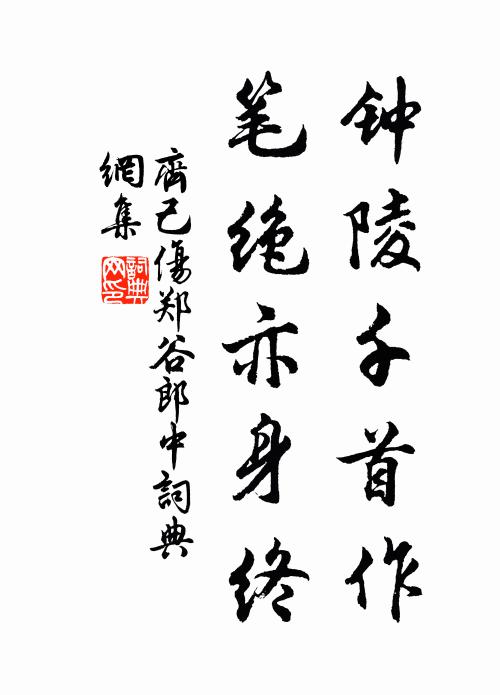 钟陵千首作
笔绝亦身终
齊己傷郑谷郎中詞典
網集
詞典網印